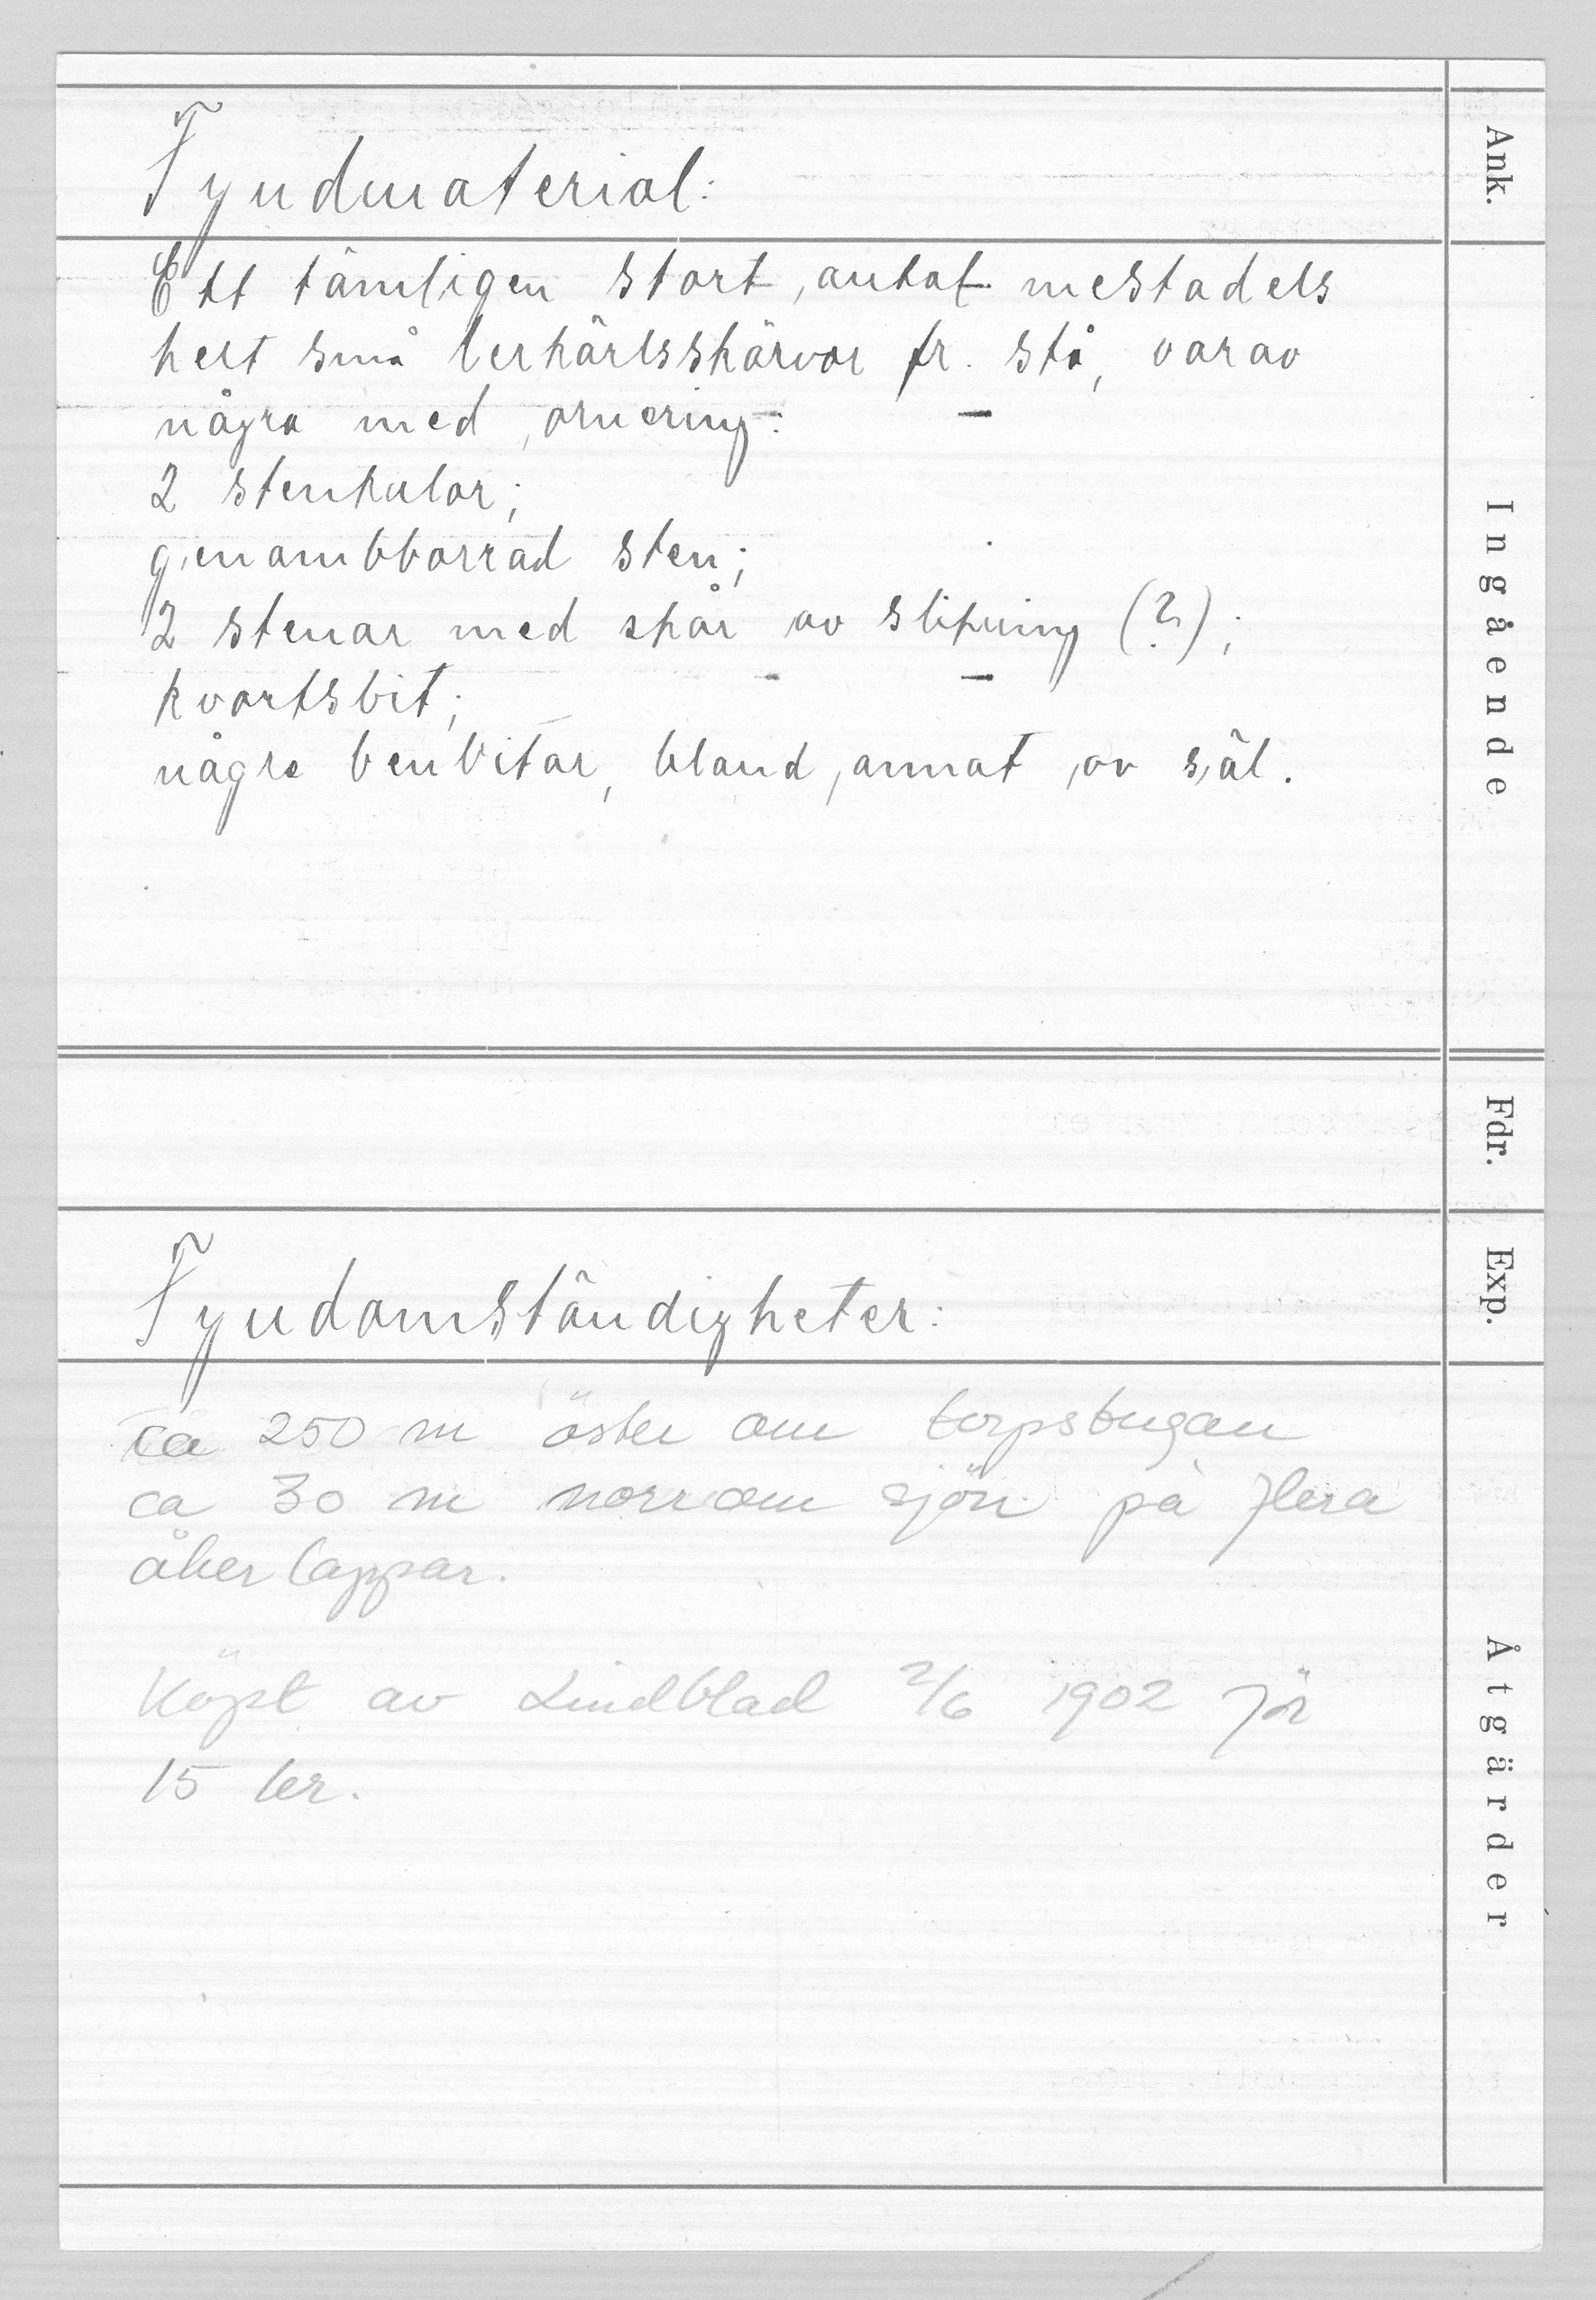 Fyndmaterial:
Ett tämligen stort antal mestadels
helt små lerkärlsskärvor fr. stå, varav
några med ornering:
2 stenkulor;
genombborrad sten;
2 stenar med spår av slipning (?);
kvartsbit;
några benbitar, bland annat av säl.
Fyndomständigheter:
ca 250 m öster om torpstugan
ca 30 m norr om sjön på flera
åkerlappar.
Köpt av Lindblad 2/6 1902 för
15 kr.
Ank.
Ingående
Fdr.
Exp.
Åtgärder